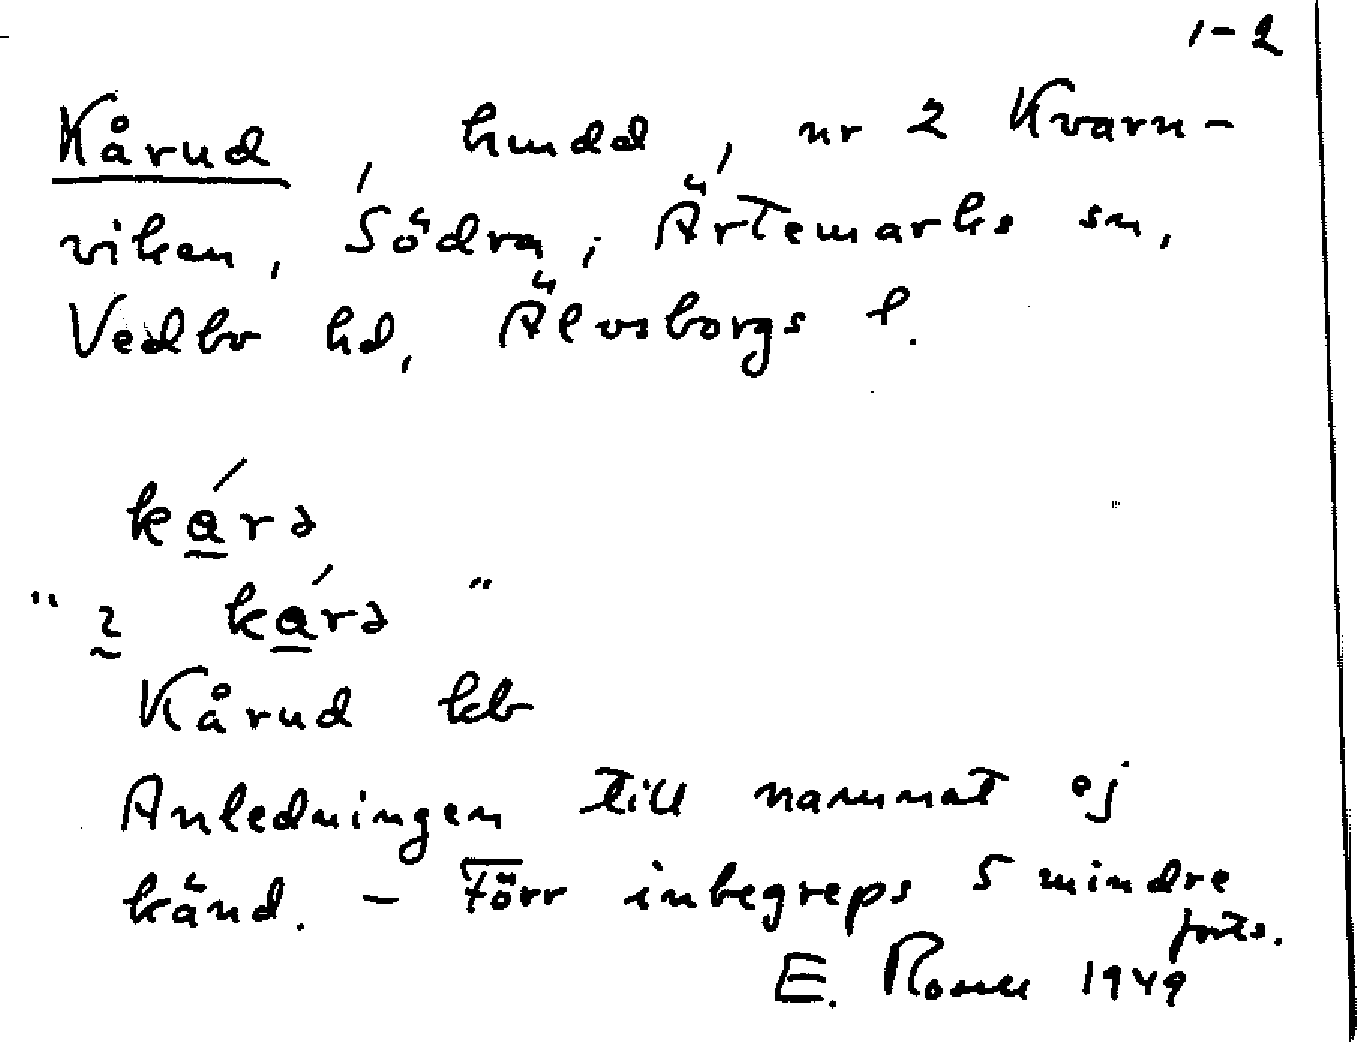 1-2
Kårud, hmdd, nr 2 Kvarn-
viken, Södra, Ärtemarks sn,
Vedbo hd, Älvsborgs l.
kárə
" 2 kárə "
Kårud kb
Anledningen till namnet ej
känd. - Förr inbegreps 5 mindre
forts.
E. 1949